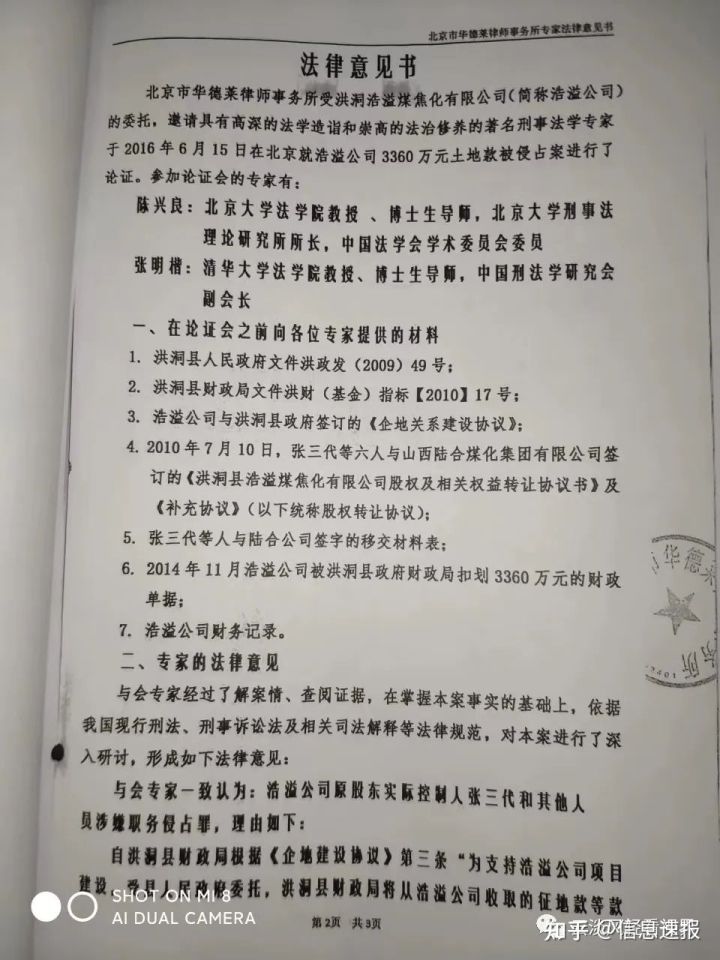 北京市华德莱律师事务所专家法律意见书
法律意见书
北京市华德莱律师事务所受洪洞浩溢煤焦化有限公司(简称浩溢公司)
的委托，邀请具有高深的法学造诣和崇高的法治修养的著名刑事法学专家
于 2016 年 6 月 15 日在北京就浩溢公司 3360 万元土地款被侵占案进行了
论证。参加论证会的专家有：
陈兴良：北京大学法学院教授 、博士生导师，北京大学刑事法
理论研究所所长，中国法学会学术委员会委员
张明楷：清华大学法学院教授、博士生导师，中国刑法学研究会
副会长
一、在论证会之前向各位专家提供的材料
1. 洪洞县人民政府文件洪政发（2009）49 号；
2. 洪洞县财政局文件洪财（基金）指标【2010】17 号；
3. 浩溢公司与洪洞县政府签订的《企地关系建设协议》；
4. 2010 年 7 月 10 日，张三代等六人与山西陆合煤化集团有限公司签
订的《洪洞县浩溢煤焦化有限公司股权及相关权益转让协议书》及
《补充协议》（以下统称股权转让协议）；
5. 张三代等人与陆合公司签字的移交材料表；
6. 2014 年 11 月浩溢公司被洪洞县政府财政局扣划 3360 万元的财政
单据；
7. 浩溢公司财务记录。
二、专家的法律意见
与会专家经过了解案情、查阅证据，在掌握本案事实的基础上，依据
我国现行刑法、刑事诉讼法及相关司法解释等法律规范，对本案进行了深
入研讨，形成如下法律意见：
与会专家一致认为：浩溢公司原股东实际控制人张三代和其他人
员涉嫌职务侵占罪，理由如下：
自洪洞县财政局根据《企地建设协议》第三条“为支持浩溢公司项目
建设，受县人民政府委托，洪洞县财政局将从浩溢公司收取的征地款等款
第2页 共3页
华德莱
务所
SHOT ON MI 8
AI DUAL CAMERA
知乎 @信息速报